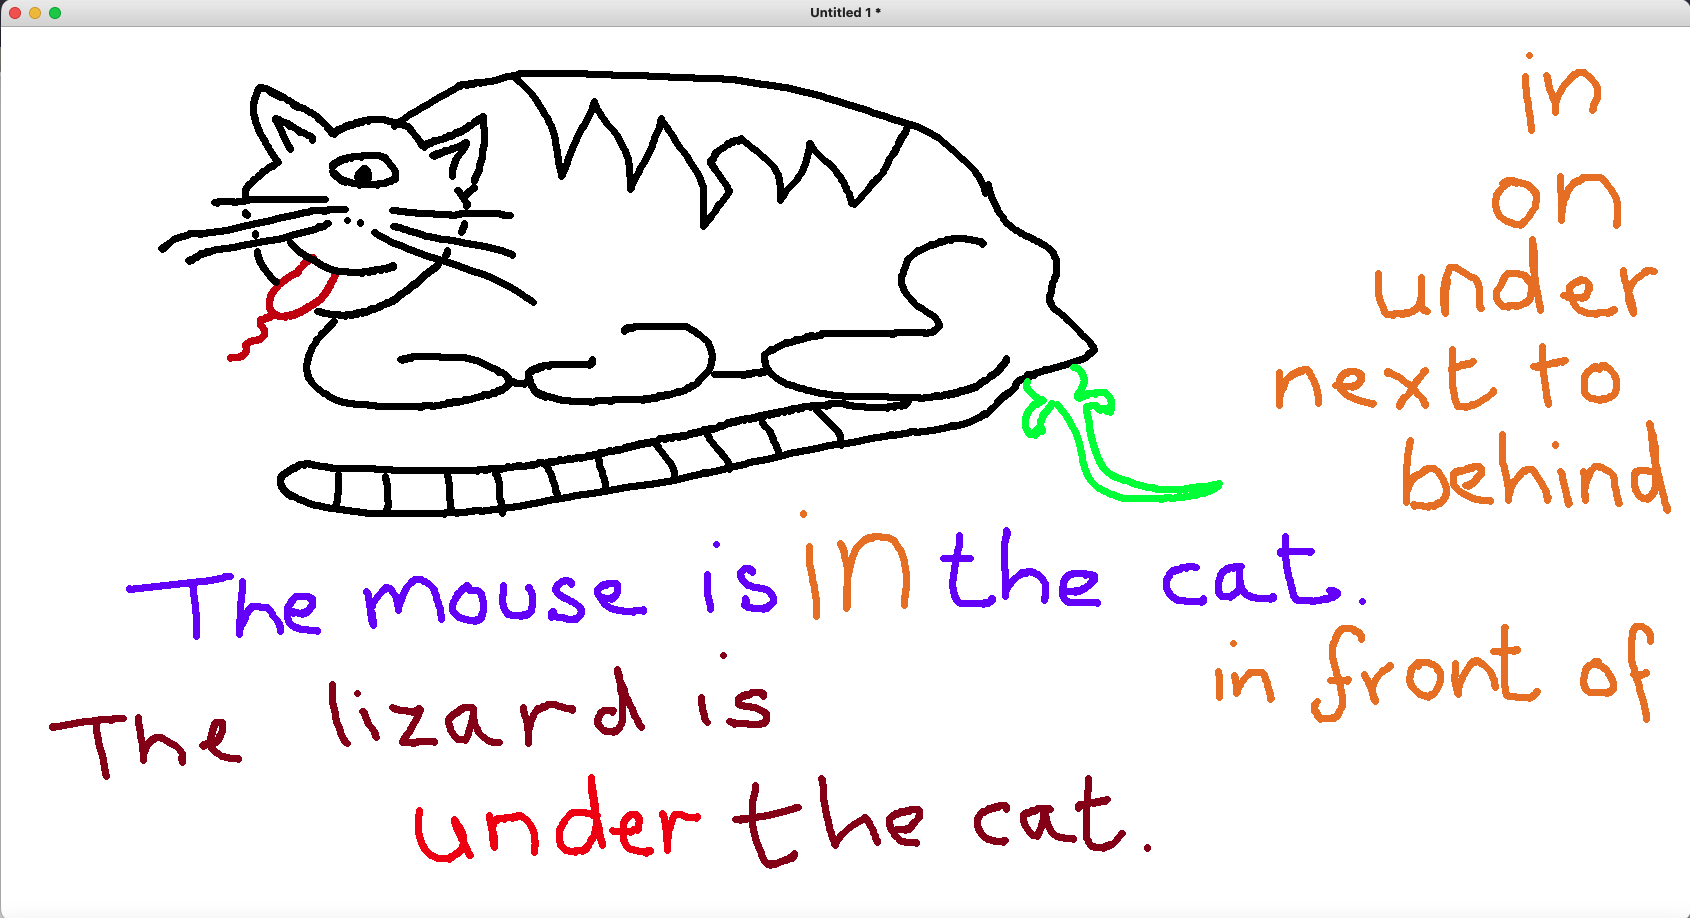 Untitled 1 *
in
on
under
next to
behind
The mouse is in the cat.
in front of
The lizard is
under the cat.